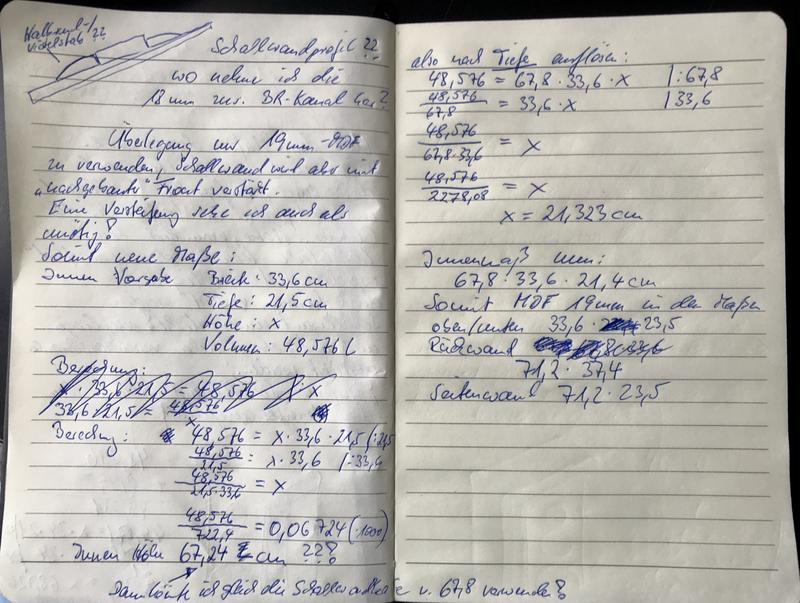 Halbrund-/
Viertelstab ??
Schallwandprofil ??
wo nehme ich die
18mm zus. BR-Kanal her?
Überlegung nur 19mm-MDF
zu verwenden, Schallwand wird aber mit
„nachgebauter" Front verstärkt.
Eine Versteifung sehe ich auch als
unnötig!
Somit neue Maße:
Innen Vorgabe Breite: 33,6cm
Tiefe: 21,5cm
Höhe: x
Volumen: 48,576 l
Berechnung:
x · 33,6 · 21,5 = 48,576
33,6 · 21,5 = 48,576 / x
Berechnung: 48,576 = x · 33,6 · 21,5 /:21,5
48,576 / 21,5 = x · 33,6 /:33,6
48,576 / 21,5·33,6 = x
48,576 / 722,4 = 0,06724 (·1000)
Innen Höhe 67,24 cm ???
Dann könnte ich gleich die Schallwandhöhe v. 67,8 verwenden?
also nach Tiefe auflösen:
48,576 = 67,8 · 33,6 · x /:67,8
48,576 / 67,8 = 33,6 · x /33,6
48,576 / 67,8·33,6 = x
48,576 / 2278,08 = x
x = 21,323cm
Innenmaß nun:
67,8 · 33,6 · 21,4cm
Somit MDF 19mm in den Maßen
oben/unten 33,6 · 23,5
Rückwand
71,2 · 37,4
Seitenwand 71,2 · 23,5